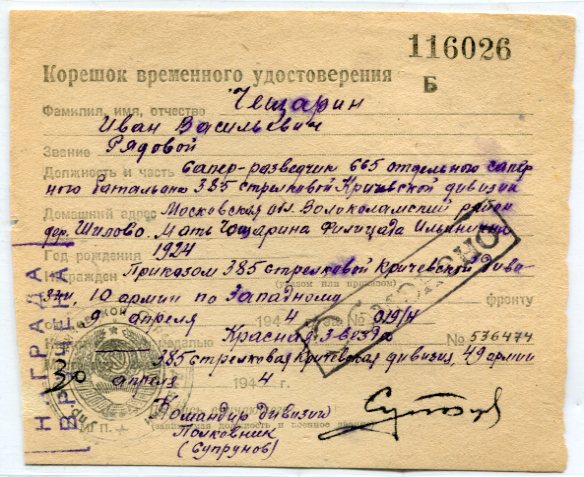 116026
Б
Корешок временного удостоверения
Фамилия, имя, отчество Чещарин
Иван Васильевич
Звание Рядовой
Должность и часть Сапер-разведчик 665 отдельного сапер
ного батальона 385 стрелковой Кричевской дивизии
Домашний адрес Московская обл. Волоколамский район
дер. Шилово. Мать Чещарина Филицада Ильинична
Год рождения 1924
Награжден Приказом 385 стрелковой Кричевской диви
(указом или приказом)
зии, 10 армии по Западному фронту
9 апреля 1944 № 019/н
медалью Красная Звезда № 536474
385 стрелковая Кричевская дивизия, 49 армии
30 апреля 1944
Командир дивизии
Полковник
(Супрунов)
М.П.
НАГРАДА
ВРУЧЕНА